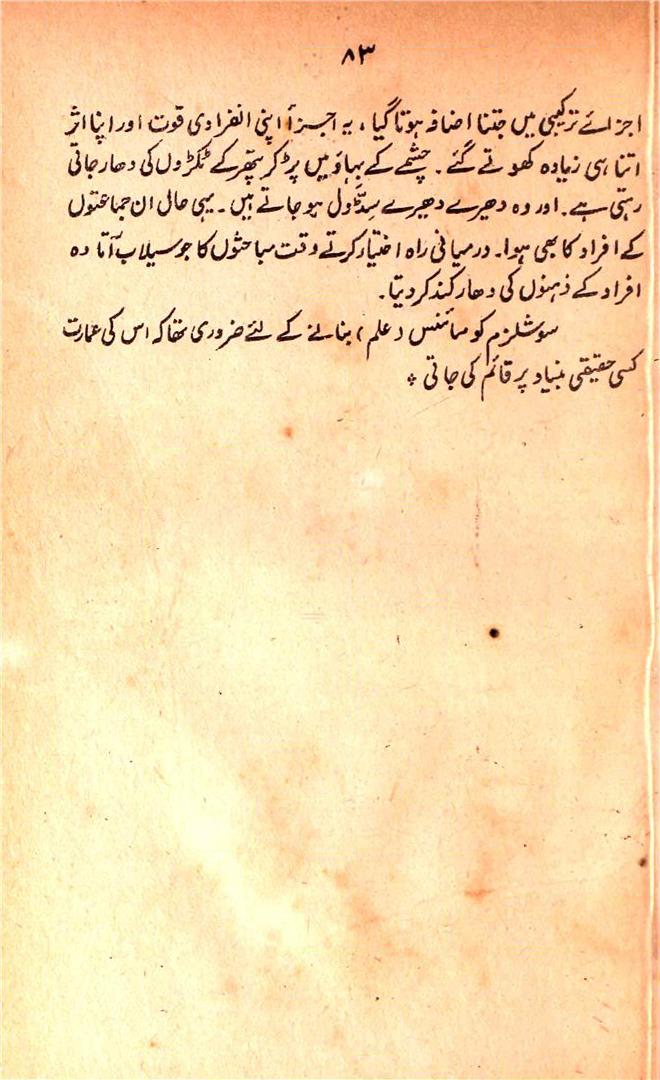 ۸۳
اجزائے ترکیبی میں جتنا اضافہ ہوتا گیا، یہ اجزأ اپنی انفرادی قوت اور اپنا اثر
اتنا ہی زیادہ کھوتے گئے۔ چشمے کے بہاؤ میں پڑ کر پتھر کے ٹکڑوں کی دھار جاتی
رہتی ہے۔ اور وہ دھیرے دھیرے سڈول ہو جاتے ہیں۔ یہی حال ان جماعتوں
کے افراد کا بھی ہوا۔ درمیانی راہ اختیار کرتے وقت مباحثوں کا جو سیلاب آتا وہ
افراد کے ذہنوں کی دھار کند کر دیتا۔
سوشلزم کو سائنس (علم) بنانے کے لئے ضروری تھا کہ اس کی عمارت
کسی حقیقی بنیاد پر قائم کی جاتی ٭